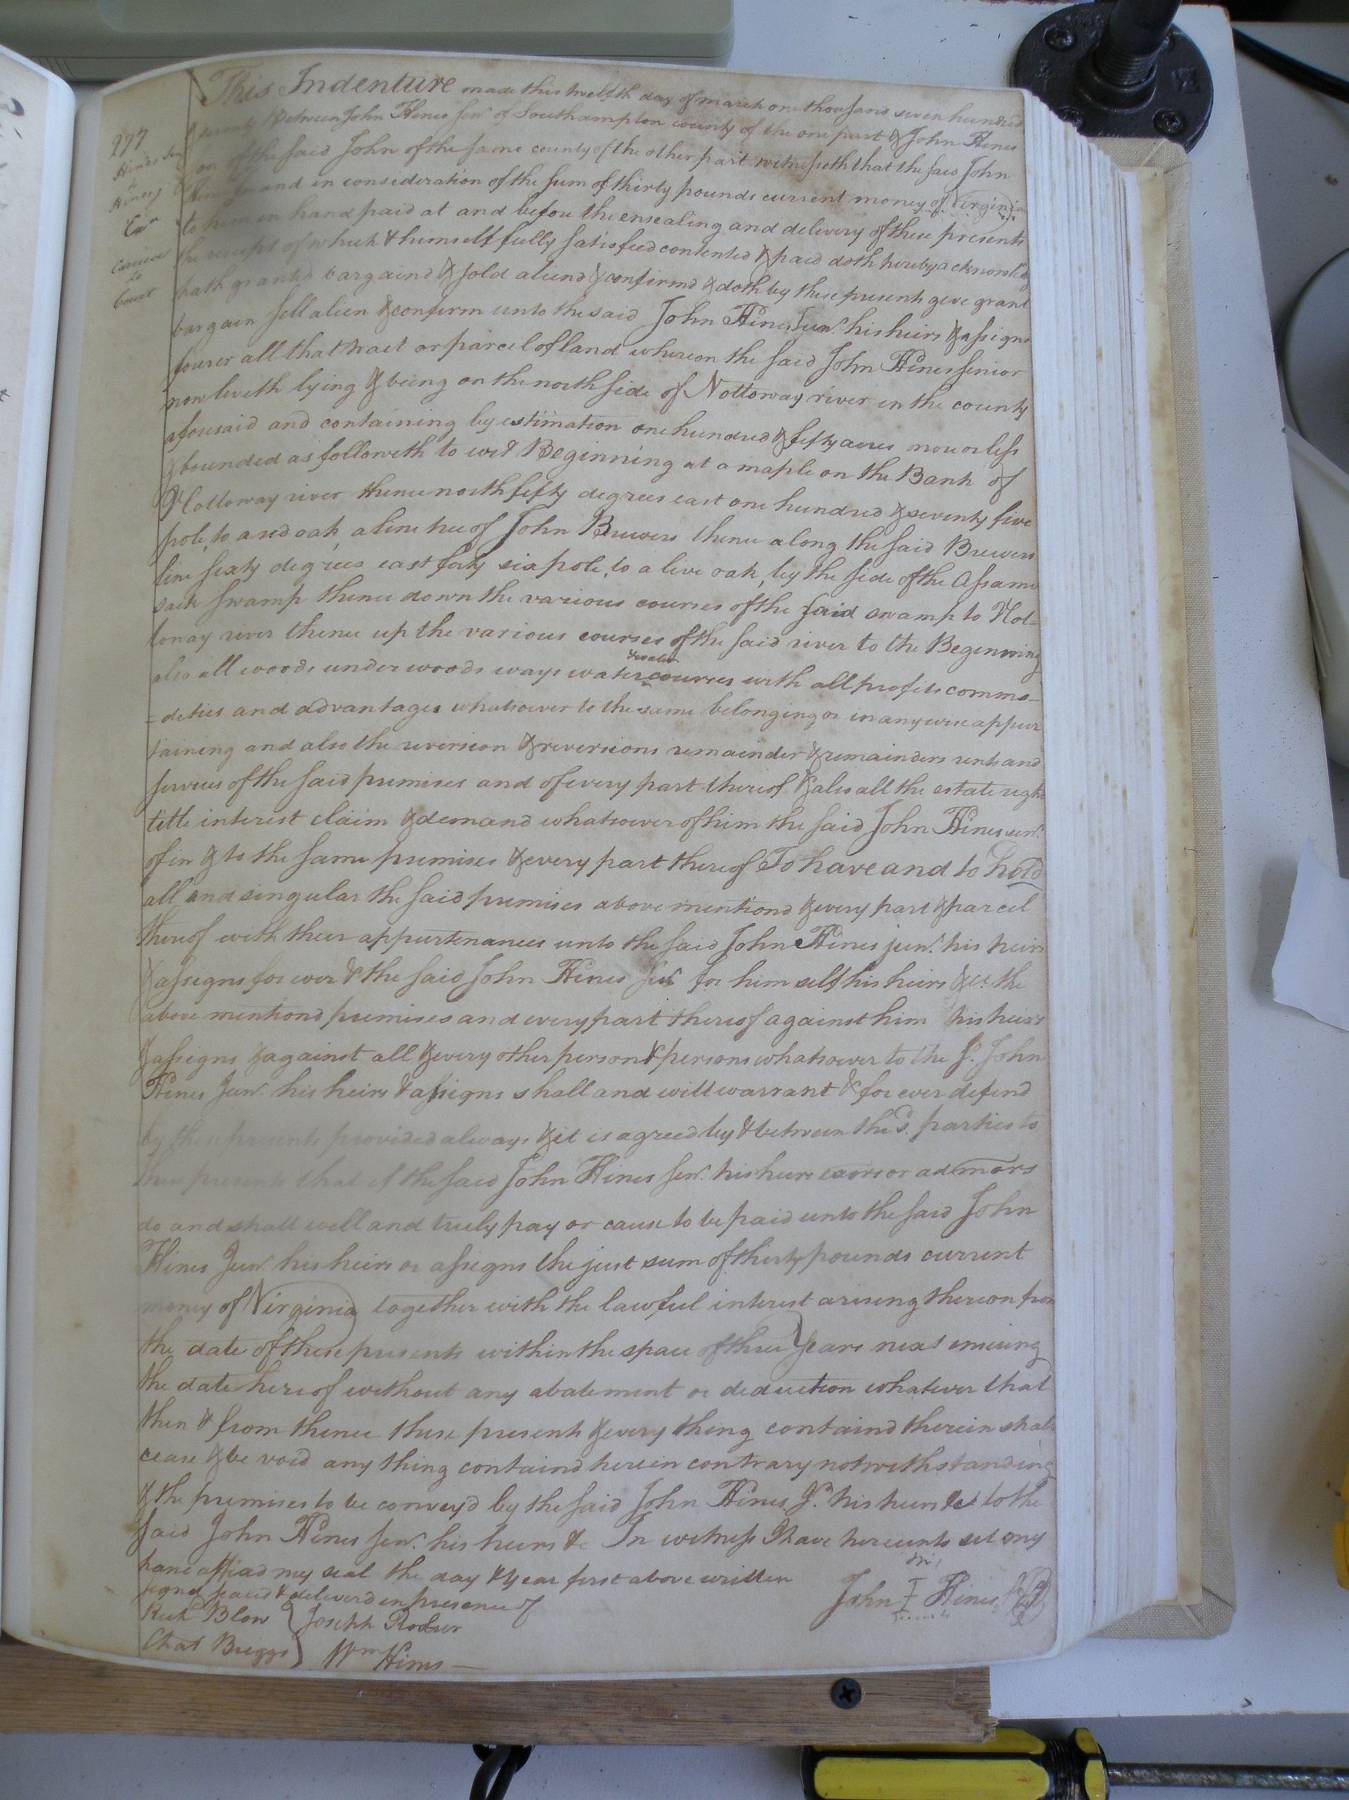 277
Hines Sen
to
Hines J
Exn
Carried
to
Court
This Indenture made this twelfth day of march one thousand seven hundred
& seventy Between John Hines Senr of Southampton county of the one part & John Hines
son of the said John of the same county of the other part witnesseth that the said John
Hines for and in consideration of the sum of thirty pounds current money of Virginia
to him in hand paid at and before the ensealing and delivery of these presents
the receipt of which & himself fully satisfied contented & paid doth hereby acknowledg
hath granted bargaind & sold aliend & confirmd & doth by these presents give grant
bargain sell alien & confirm unto the said John Hines Junr his heirs & assigns
forever all that tract or parcel of land whereon the said John Hines senior
now liveth lying & being on the north side of Nottoway river in the county
aforesaid and containing by estimation one hundred & fifty acres more or less
& bounded as followeth to wit Beginning at a maple on the Bank of
Nottoway river thence north fifty degrees east one hundred & seventy five
pole, to a red oak, a line tree of John Brewers thence along the said Brewers
line sixty degrees east forty six pole, to a live oak, by the side of the Assamo
sack swamp thence down the various courses of the said swamp to Not-
toway river thence up the various courses of the said river to the Beginning
also all woods under woods ways waters & water courses with all profits commo-
-dities and advantages whatsoever to the same belonging or in any wise appur
taining and also the reversion & reversions remainder & remainders rents and
services of the said premises and of every part thereof & also all the estate right
title interest claim & demand whatsoever of him the said John Hines senr
of in & to the same premises & every part thereof To have and to hold
all and singular the said premises above mentiond & every part & parcel
thereof with their appurtenances unto the said John Hines junr his heirs
& assigns for ever & the said John Hines Senr for him self his heirs &c the
above mentiond premises and every part thereof against him his heirs
& assigns & against all & every other person & persons whatsoever to the sd John
Hines Junr his heirs & assigns shall and will warrant & for ever defend
by these presents provided always & it is agreed by & between the sd parties to
these presents that if the said John Hines Senr his heirs exors or admors
do and shall well and truly pay or cause to be paid unto the said John
Hines Junr his heirs or assigns the just sum of thirty pounds current
money of Virginia together with the lawful interest arising thereon from
the date of these presents within the space of three years next ensuing
the date hereof without any abatement or deduction whatever that
then & from thence these present & every thing containd therein shall
cease & be void any thing containd herein contrary notwithstanding
& the premises to be convey'd by the said John Hines Jr his heirs &c to the
said John Hines Senr his heirs &c In witness I have hereunto set my
hand affixd my seal the day & year first above written
signd seald & deliverd in presence of
John I Hines
Richd Blow Joseph
Chas Briggs Wm Hines